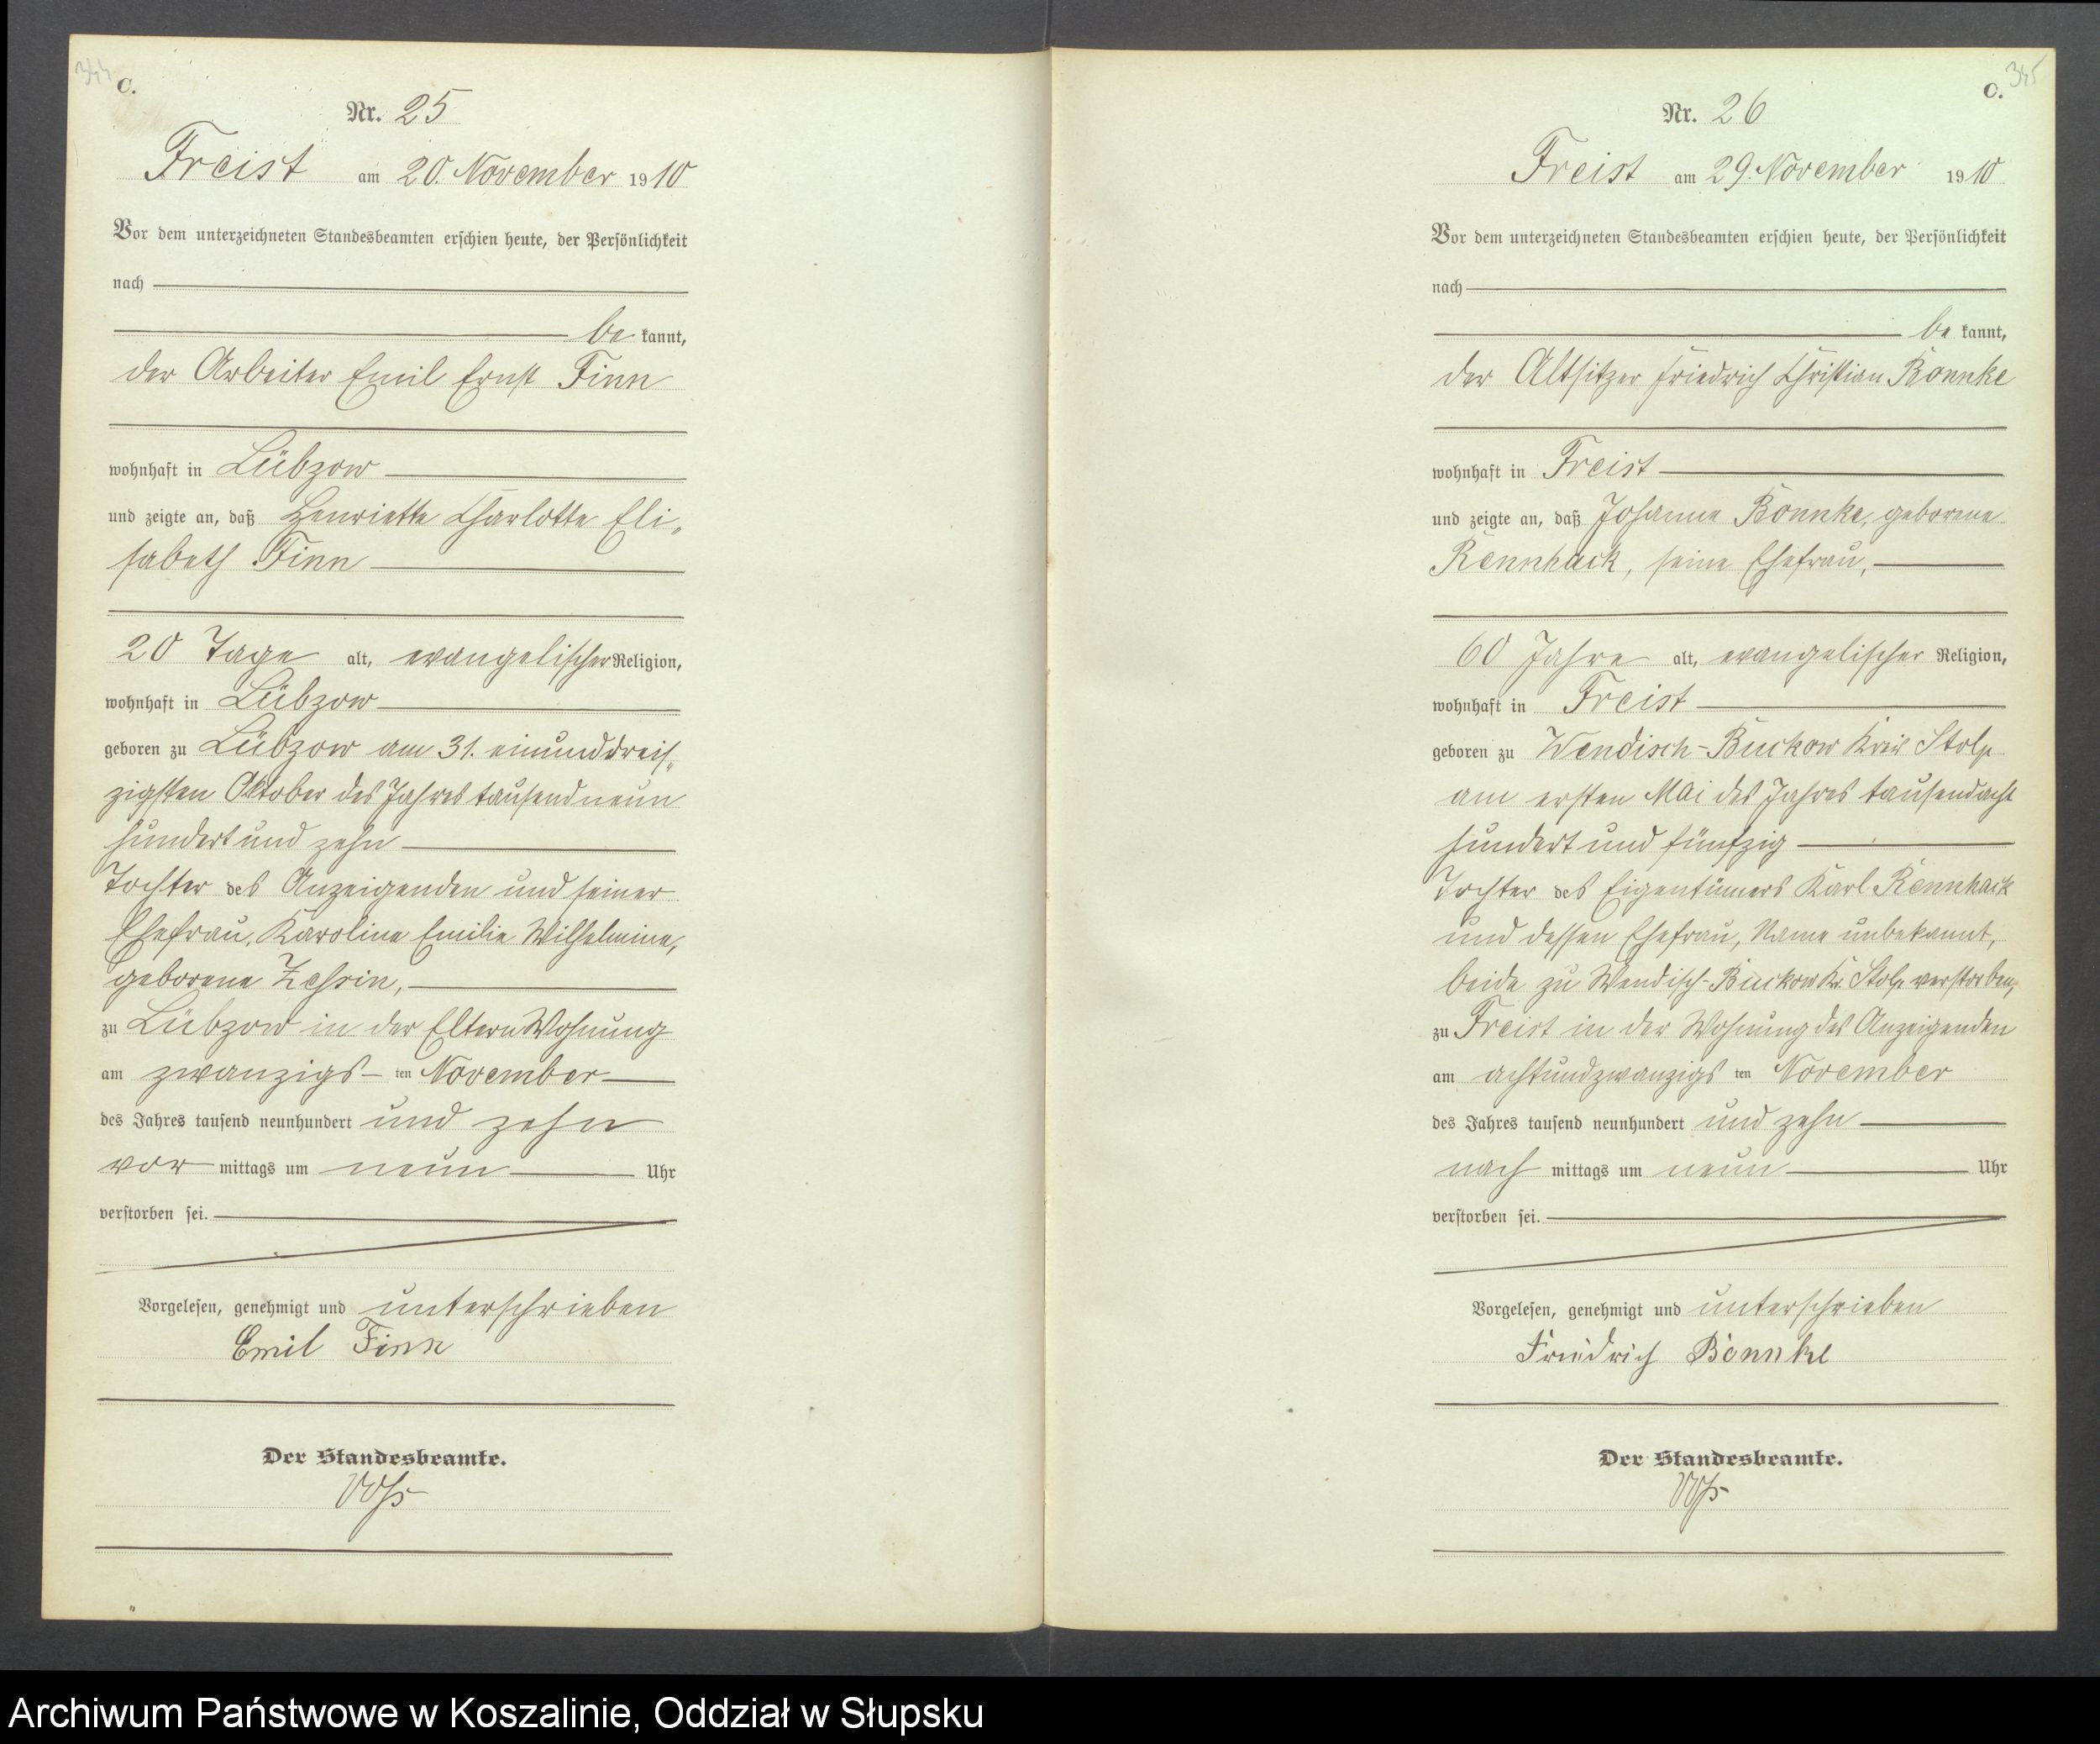 344
C.
Nr. 25
Freist am 20. November 1910
Vor dem unterzeichneten Standesbeamten erschien heute, der Persönlichkeit
nach
be kannt,
der Arbeiter Emil Ernst Finn
wohnhaft in Lübzow
und zeigte an, daß Henriette Charlotte Eli„
sabeth Finn
20 Tage alt, evangelischer Religion,
wohnhaft in Lübzow
geboren zu Lübzow am 31. einunddreis„
zigsten Oktober des Jahres tausendneun
hundert und zehn
Tochter des Anzeigenden und seiner
Ehefrau, Karoline Emilie Wilhelmine,
geborene Zessin,
zu Lübzow in der Eltern Wohnung
am zwanzigs-ten November
des Jahres tausend neunhundert und zehn
vor mittags um neun Uhr
verstorben sei.
Vorgelesen, genehmigt und unterschrieben
Emil Finn
Der Standesbeamte.
345
C.
Nr. 26
Freist am 29. November 1910
Vor dem unterzeichneten Standesbeamten erschien heute, der Persönlichkeit
nach
be kannt,
der Altsitzer Friedrich Christian Bonnke
wohnhaft in Freist
und zeigte an, daß Johanne Bonnke, geborene
Rennhack, seine Ehefrau,
60 Jahre alt, evangelischer Religion,
wohnhaft in Freist
geboren zu Wendisch-Buckow Kreis Stolp
am ersten Mai des Jahres tausendacht
hundert und fünfzig
Tochter des Eigentümers Karl Rennhack
und dessen Ehefrau, Name unbekannt,
beide zu Wendisch-Buckow Kr. Stolp verstorben,
zu Freist in der Wohnung des Anzeigenden
am achtundzwanzigs ten November
des Jahres tausend neunhundert und zehn
nach mittags um neun Uhr
verstorben sei.
Vorgelesen, genehmigt und unterschrieben
Friedrich Bonnke
Der Standesbeamte.
Archiwum Państwowe w Koszalinie, Oddział w Słupsku